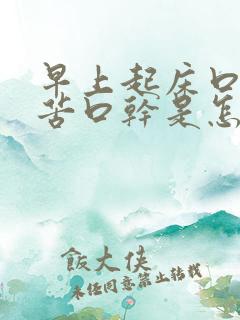 早上起床口
苦口幹是怎
飯大俠
未經同意禁止轉載